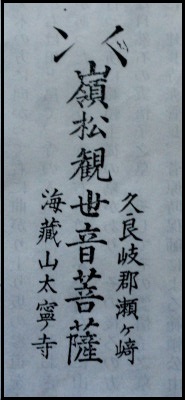 久良岐郡瀬ヶ﨑
嶺松観世音菩薩
海藏山太寧ノ寺